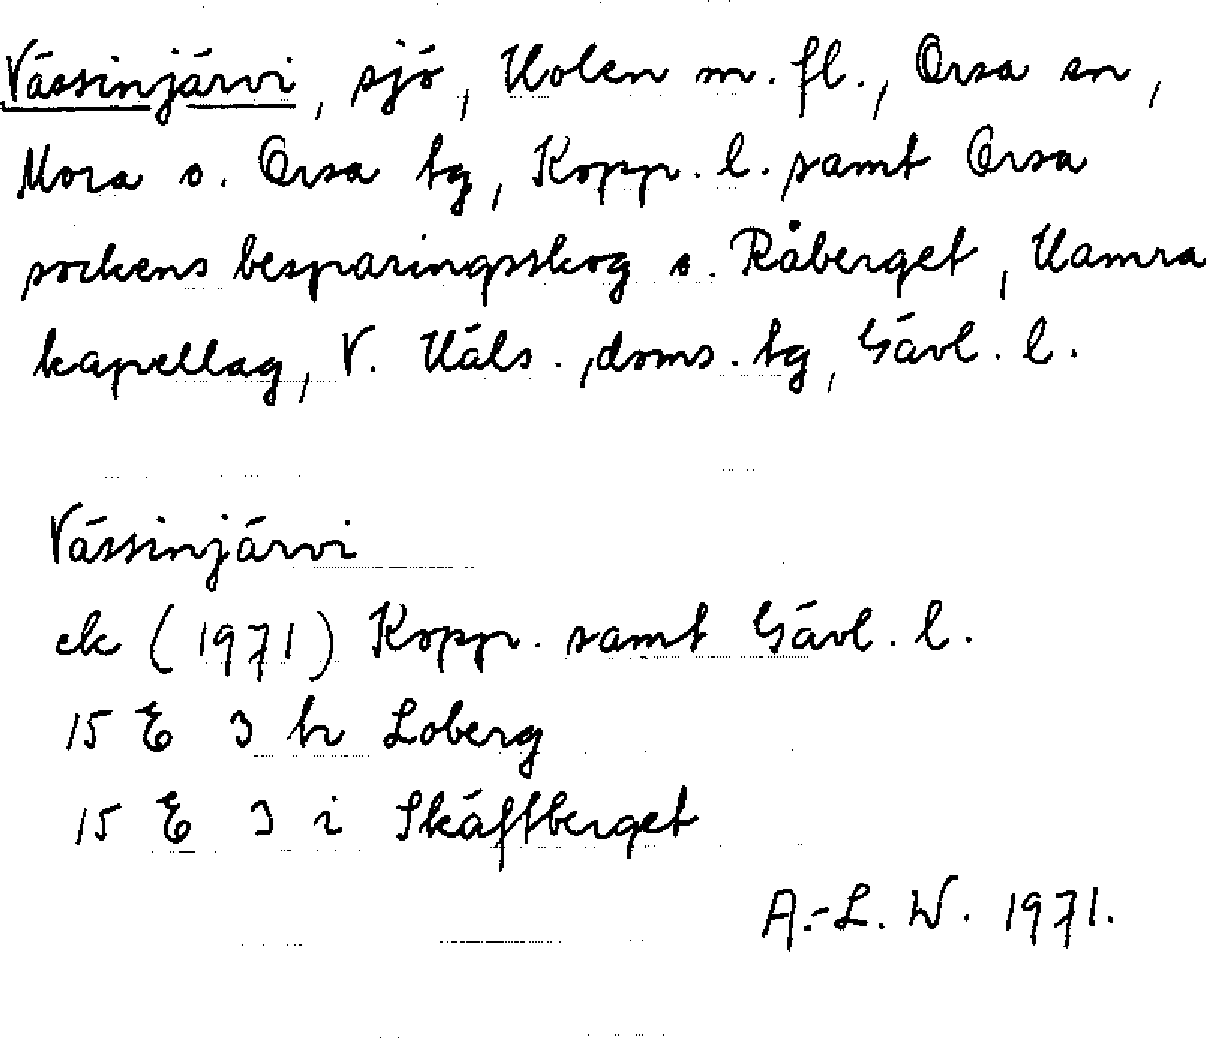 Vässinjärvi, sjö, Holen m. fl., Orsa sn,
Mora o. Orsa tg, Kopp. l. samt Orsa
sockens besparingsskog o. Råberget, Hamra
kapellag, V. Häls. doms. tg, Gävl. l.
Vässinjärvi
ek (1971) Kopp. samt Gävl. l.
15 E 3 h Loberg
15 E 3 i Skäftberget
A.-L. W. 1971.